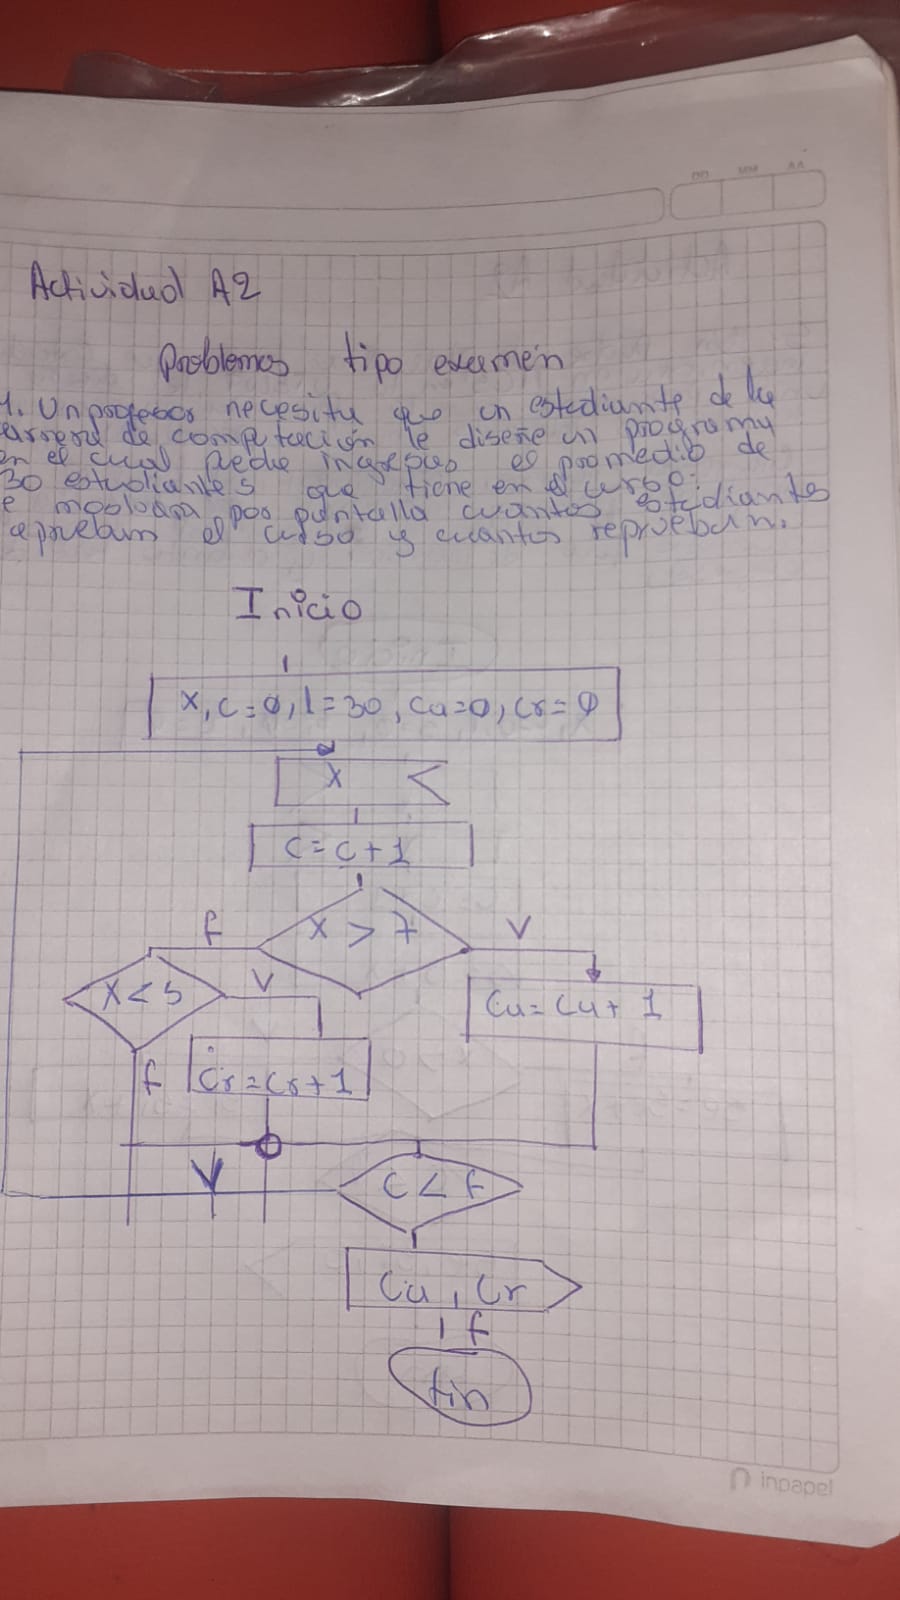 DD MM AA
Actividad A2
Problemas tipo examen
1. Un profesor necesita que un estudiante de la
carrera de computación le diseñe un programa
en el cual puede ingresar el promedio de
30 estudiantes que tiene en el curso.
e mostrara por pantalla cuantos estudiantes
aprueban el curso y cuantos reprueban.
Inicio
x, c=0, l=30, Ca=0, Cr=0
X
C=C+1
f X > 7 V
X<5 V
Ca=Ca+1
f Cr=Cr+1
V C < f
Ca, Cr
f
fin
inpapel